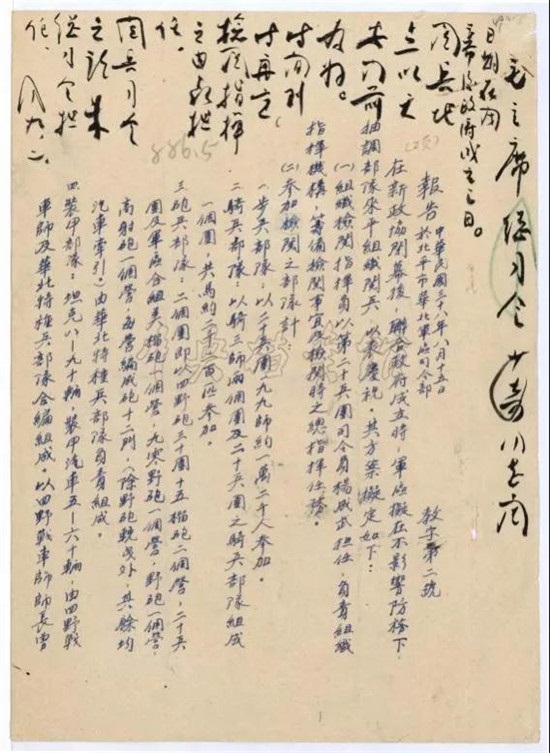 毛主席 總司令 少奇
日期在南
幕後政府成立之日。
閱兵地
點以天
安門前
為好。
時間到
時再定
檢閱指揮
之由聶担
任。
閱兵司令
之許朱
總司令担
任。
886.5
報告
中華民國三十八年八月十五日
於北平市華北軍區司令部
教字第二號
在新政協開幕後,聯合政府成立時,軍區擬在不影響防務下,
抽調部隊來平組織閱兵,以表慶祝,其方案擬定如下:
(一)組織檢閱指揮,以第二十兵團司令員楊成武担任,負責組織
指揮機構,籌備檢閱事宜及檢閱時之總指揮任務。
(二)參加檢閱之部隊計
一步兵部隊:以二十兵團一九九師約一萬二千人參加。
二騎兵部隊:以騎三師兩個團及二十兵團之騎兵部隊組成
一個團,共馬約二千三百匹參加。
三砲兵部隊:二個團即以四野砲三十團十五榴砲二個營,二十兵
團及軍區合組美榴砲一個營,九零野砲一個營,野砲一個營,
高射砲一個營,每營編成砲十二門,(除野砲輓曳外,其餘均
汽車牽引)由華北特種兵部隊負責組成。
四裝甲部隊:坦克八一九十輛,裝甲汽車五一六十輛,由四野戰
車師及華北特種兵部隊合編組成。以四野戰車師師長曹